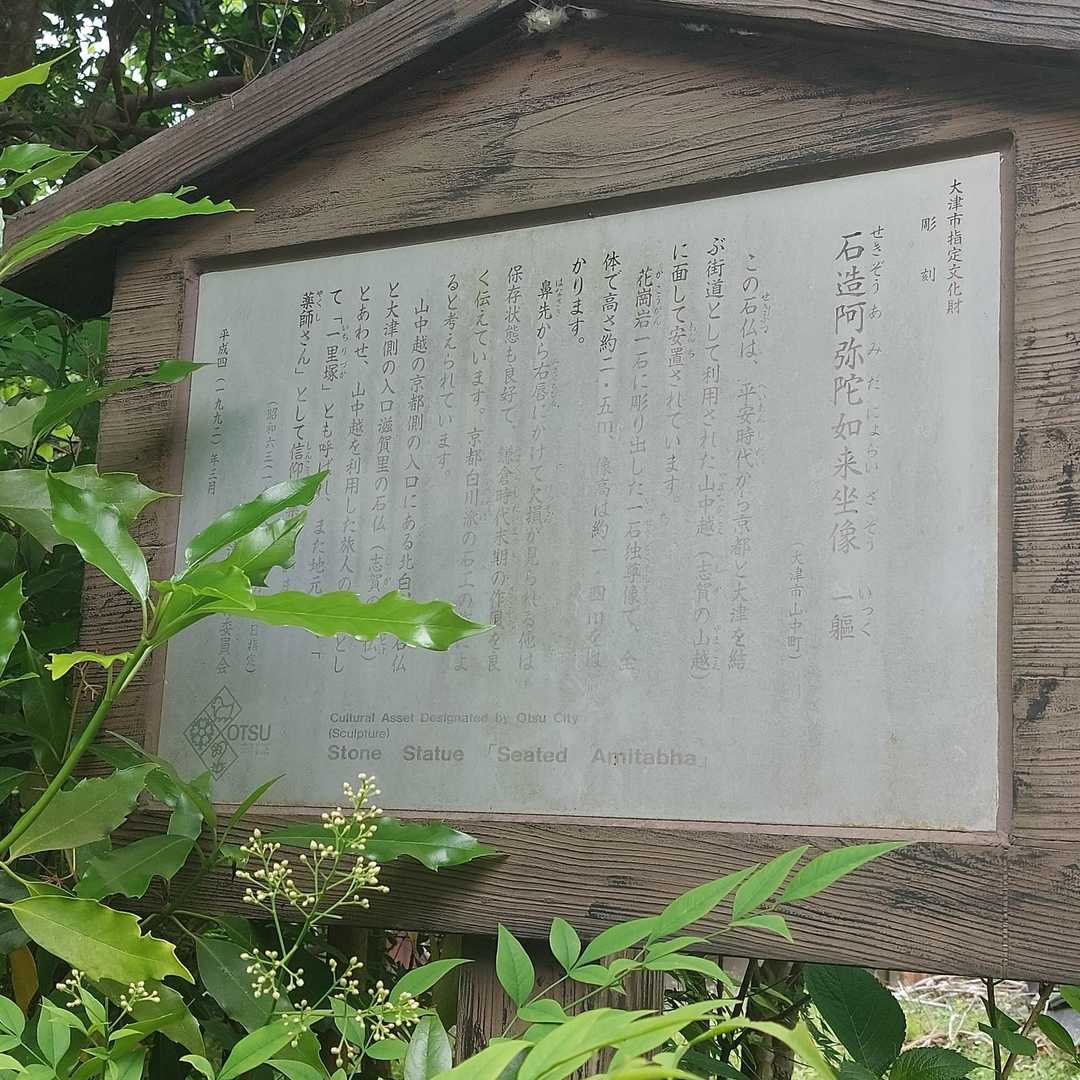 大津市指定文化財
彫刻
せきぞうあみだにょらいざぞう いっく
石造阿弥陀如来坐像 一軀
(大津市山中町)
この石仏は、平安時代から京都と大津を結
ぶ街道として利用された山中越(志賀の山越)
に面して安置されています。
花崗岩一石に彫り出した一石独尊像で、全
体で高さ約二・五m、像高は約一・四mをは
かります。
鼻先から右唇にかけて欠損が見られる他は、
保存状態も良好で、鎌倉時代末期の作風を良
く伝えています。京都白川派の石工の
ると考えられています。
山中越の京都側の入口にある北白 石仏
と大津側の入口滋賀里の石仏(志賀の 仏)
とあわせ、山中越を利用した旅人の とし
て「一里塚」とも呼ばれ、また地元 「
薬師さん」として信仰
(昭和六三 日指定)
平成四(一九九二)年三月 委員会
OTSU
Cultural Asset Designated by Otsu City
(Sculpture)
Stone Statue「Seated Amitabha」